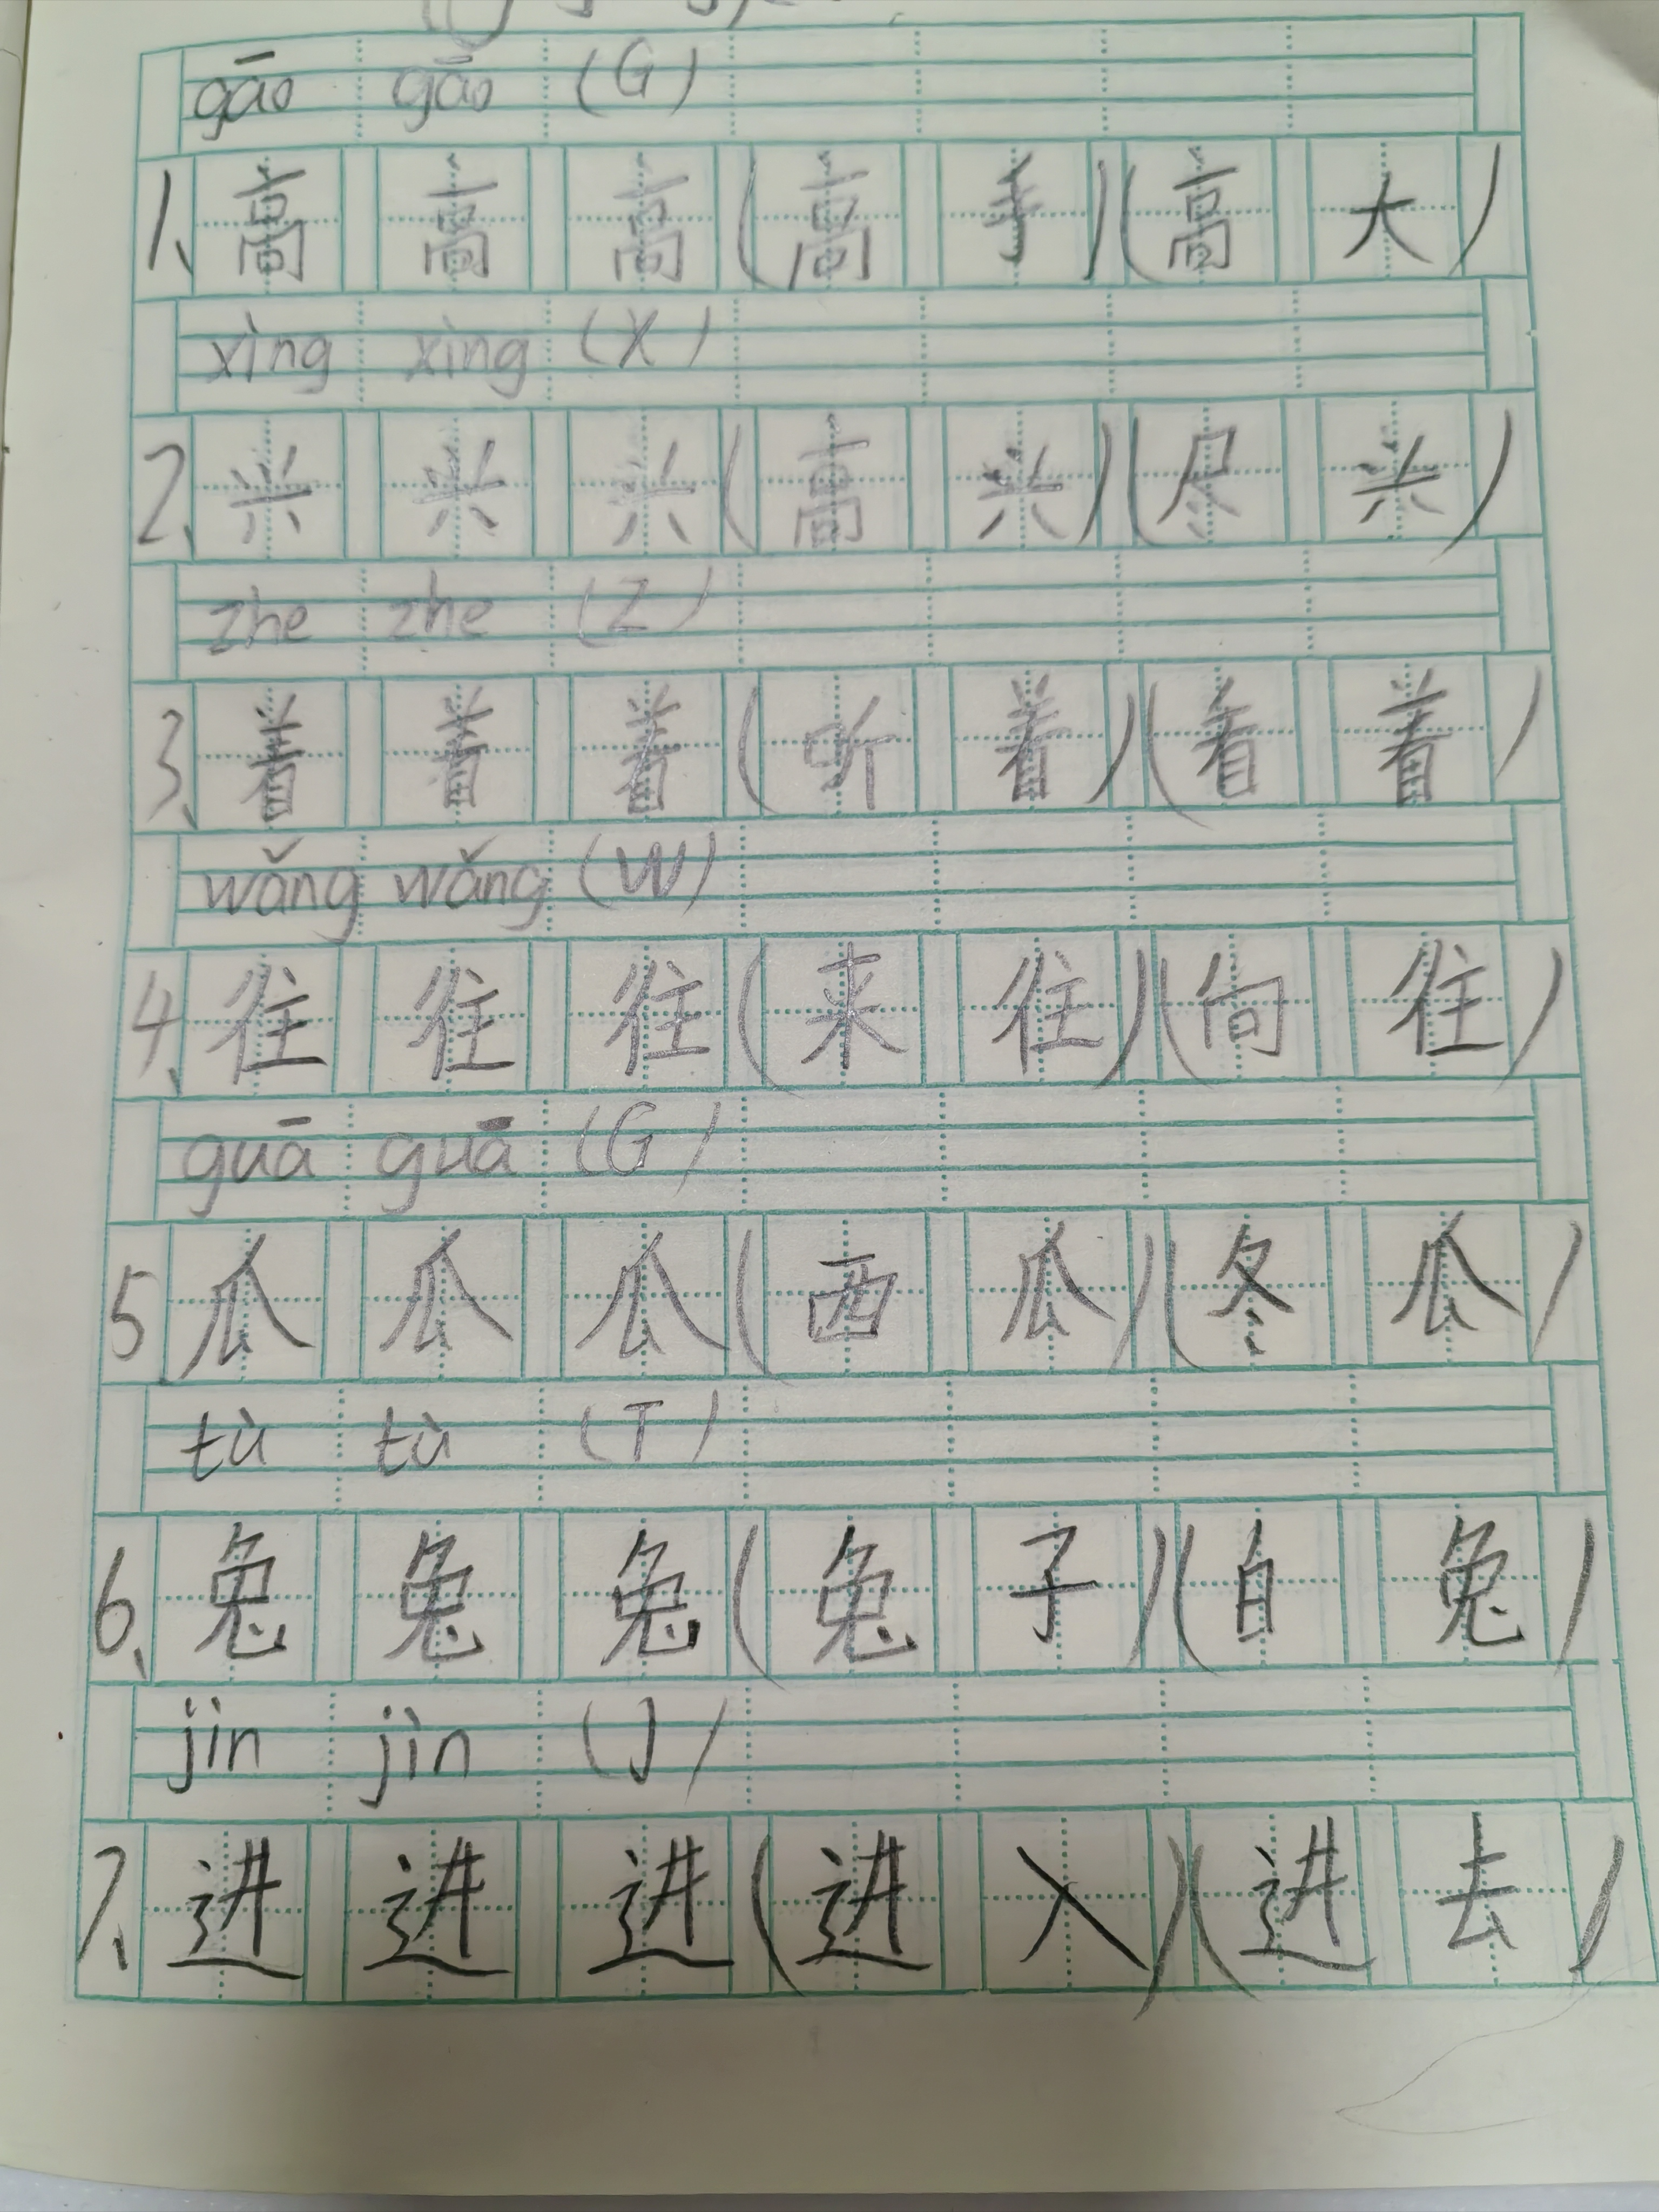 gāo gāo (G)
1、高 高 高 (高 手)(高 大)
xìng xìng (X)
2、兴 兴 兴 (高 兴)(尽 兴)
zhe zhe (Z)
3、着 着 着 (听 着)(看 着)
wǎng wǎng (W)
4、往 往 往 (来 往)(向 往)
guā guā (G)
5 瓜 瓜 瓜 (西 瓜)(冬 瓜)
tù tù (T)
6、兔 兔 兔 (兔 子)(白 兔)
jìn jìn (J)
7、进 进 进 (进 入)(进 去)